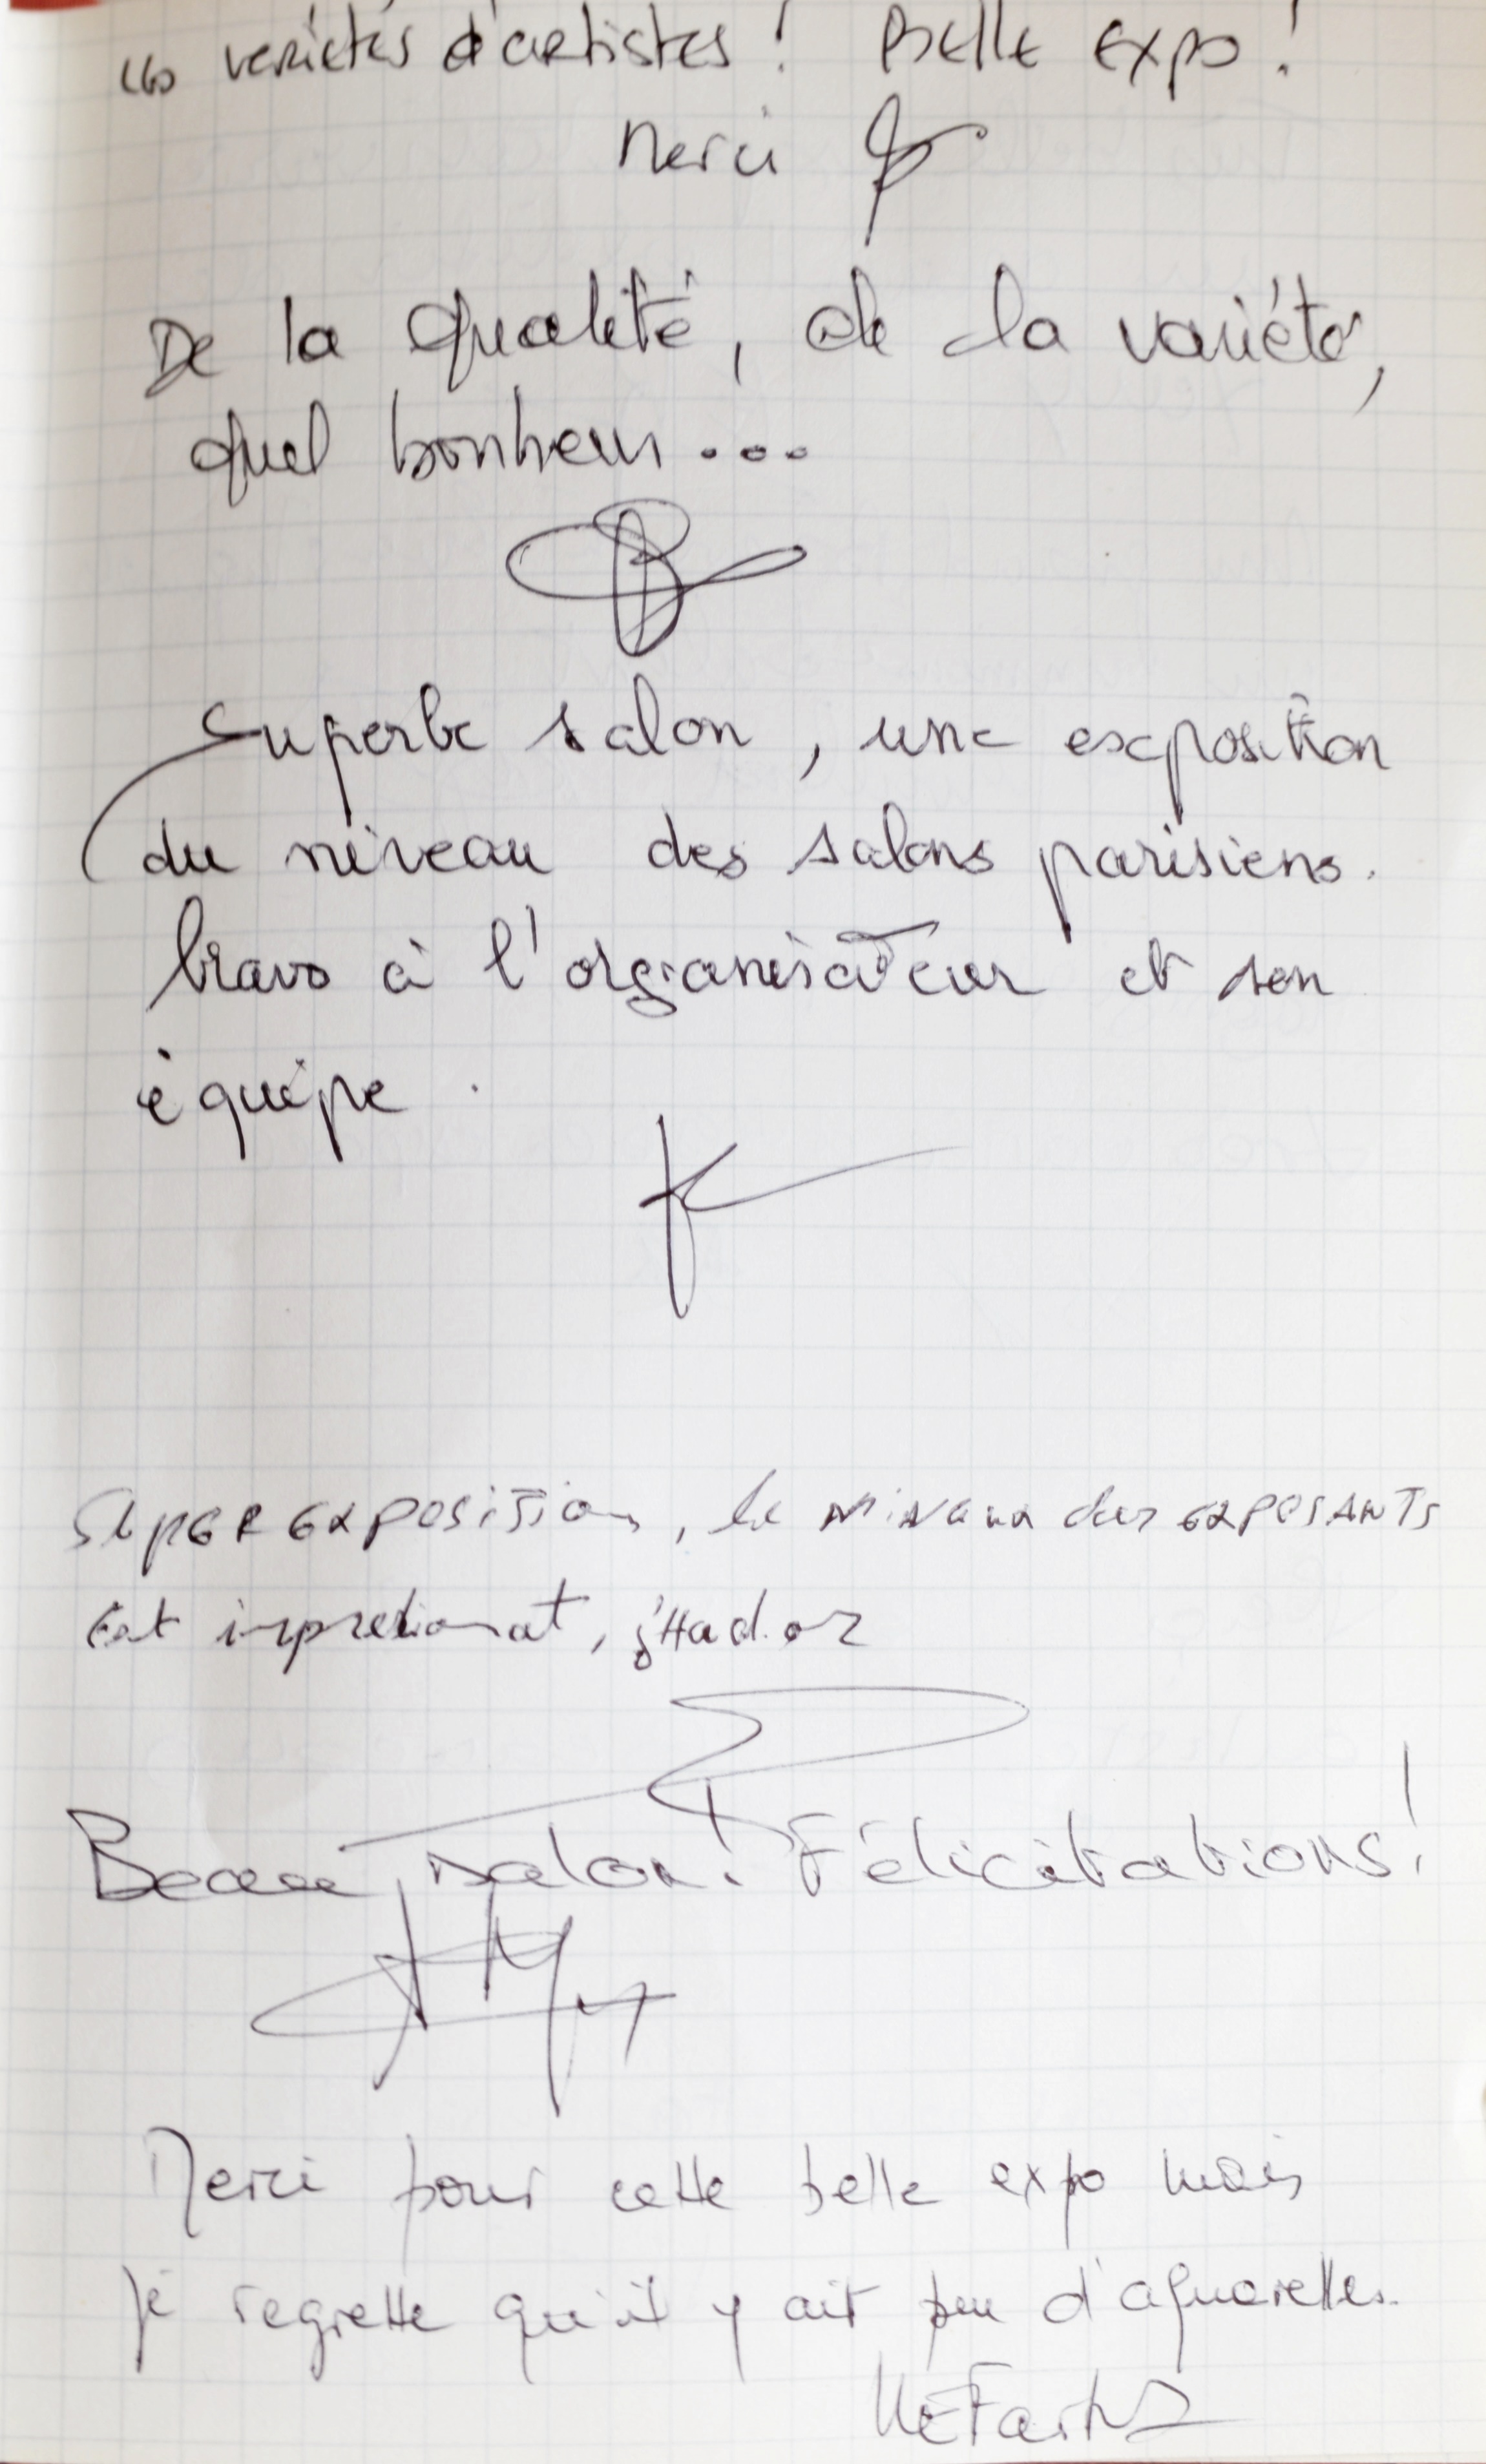 les variétés d'artistes ! Belle expo !
Merci
De la qualité, de la variété,
quel bonheur...
Superbe salon, une exposition
du niveau des salons parisiens.
bravo à l'organisateur et son
équipe.
SUPER EXPOSITION, le NIVEAU des EXPOSANTS
Est
Beau salon. Félicitations !
Merci pour cette belle expo mais
je regrette qu'il y ait peu d'aquarelles.